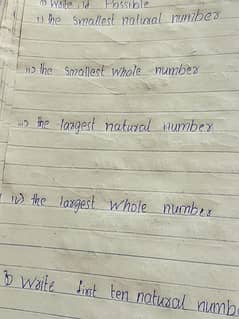 1) Write if Possible
i) the smallest natural number
ii) the smallest whole number
iii) the largest natural number
iv) the largest whole number
3) Write first ten natural numb